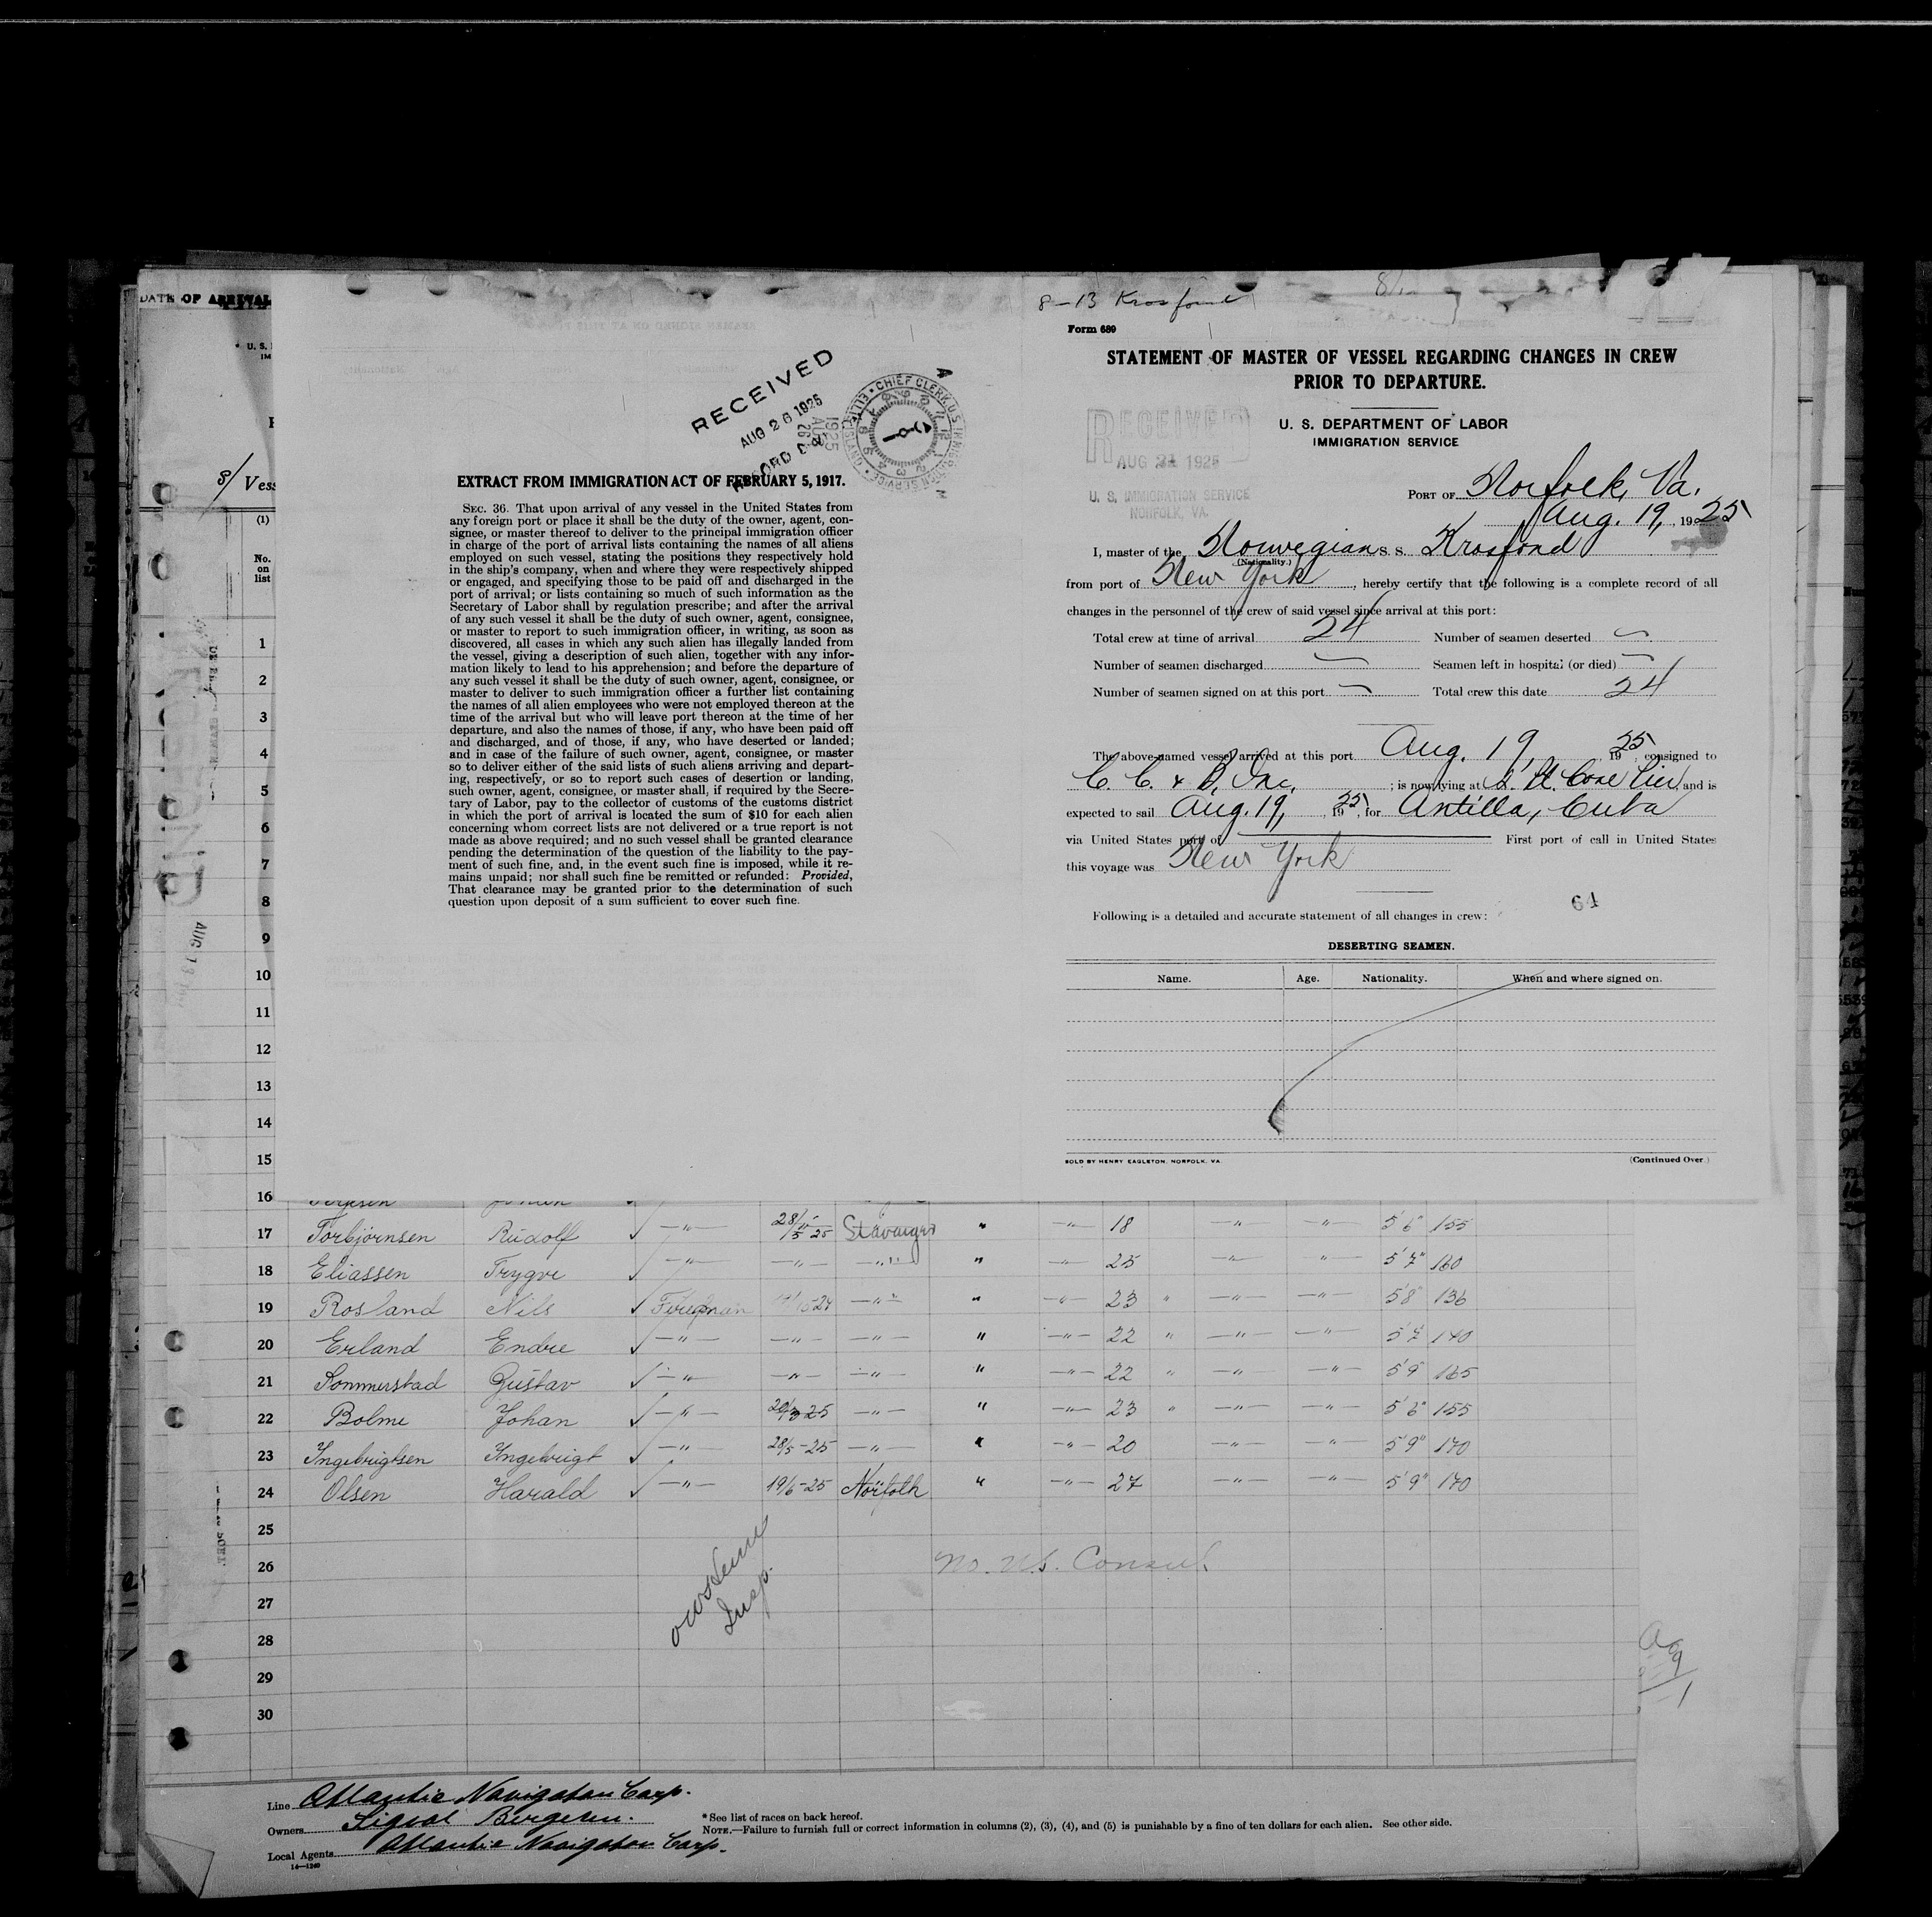 DATE OF ARRIVAL
8-13 Krosfond
Form 689
STATEMENT OF MASTER OF VESSEL REGARDING CHANGES IN CREW
PRIOR TO DEPARTURE.
U. S. DEPARTMENT OF LABOR
IMMIGRATION SERVICE
RECEIVED
AUG 1925
U. S. IMMIGRATION SERVICE
NORFOLK, VA.
PORT OF Norfolk, Va.
Aug. 19, 1925
I, master of the Norwegian S. S. Krosfond
(Nationality.)
from port of New York, hereby certify that the following is a complete record of all
changes in the personnel of the crew of said vessel since arrival at this port:
Total crew at time of arrival 24 Number of seamen deserted —
Number of seamen discharged — Seamen left in hospital (or died) —
Number of seamen signed on at this port — Total crew this date 24
The above-named vessel arrived at this port Aug. 19, 1925, consigned to
C. C. & B. Inc. ; is now lying at Pier, and is
expected to sail Aug. 19, 1925, for Antilla, Cuba
via United States port of First port of call in United States
this voyage was New York
64
Following is a detailed and accurate statement of all changes in crew:
DESERTING SEAMEN.
Name. Age. Nationality. When and where signed on.
SOLD BY HENRY EAGLETON, NORFOLK, VA. (Continued Over.)
RECEIVED
AUG 26 1925
RECORD
CHIEF CLERK, U.S. IMMIGRATION SERVICE
EXTRACT FROM IMMIGRATION ACT OF FEBRUARY 5, 1917.
SEC. 36. That upon arrival of any vessel in the United States from
any foreign port or place it shall be the duty of the owner, agent, con-
signee, or master thereof to deliver to the principal immigration officer
in charge of the port of arrival lists containing the names of all aliens
employed on such vessel, stating the positions they respectively hold
in the ship's company, when and where they were respectively shipped
or engaged, and specifying those to be paid off and discharged in the
port of arrival; or lists containing so much of such information as the
Secretary of Labor shall by regulation prescribe; and after the arrival
of any such vessel it shall be the duty of such owner, agent, consignee,
or master to report to such immigration officer, in writing, as soon as
discovered, all cases in which any such alien has illegally landed from
the vessel, giving a description of such alien, together with any infor-
mation likely to lead to his apprehension; and before the departure of
any such vessel it shall be the duty of such owner, agent, consignee, or
master to deliver to such immigration officer a further list containing
the names of all alien employees who were not employed thereon at the
time of the arrival but who will leave port thereon at the time of her
departure, and also the names of those, if any, who have been paid off
and discharged, and of those, if any, who have deserted or landed;
and in case of the failure of such owner, agent, consignee, or master
so to deliver either of the said lists of such aliens arriving and depart-
ing, respectively, or so to report such cases of desertion or landing,
such owner, agent, consignee, or master shall, if required by the Secre-
tary of Labor, pay to the collector of customs of the customs district
in which the port of arrival is located the sum of $10 for each alien
concerning whom correct lists are not delivered or a true report is not
made as above required; and no such vessel shall be granted clearance
pending the determination of the question of the liability to the pay-
ment of such fine, and, in the event such fine is imposed, while it re-
mains unpaid; nor shall such fine be remitted or refunded: Provided,
That clearance may be granted prior to the determination of such
question upon deposit of a sum sufficient to cover such fine.
S/ Vess
(1)
No.
on
list
1
2
3
4
5
6
7
8
9
10
11
12
13
14
15
16
17 Torbjørnsen Rudolf ✓ —"— 28/5 25 Stavanger " —"— 18 —"— —"— 5'6" 155
18 Eliassen Trygve ✓ —"— —"— —"— " —"— 25 —"— " 5'7" 160
19 Rosland Nils ✓ Fireman —"— " —"— 23 " —"— —"— 5'8" 136
20 Erland Endre ✓ —"— —"— —"— " —"— 22 " —"— —"— 5'7" 140
21 Sommerstad Gustav ✓ —"— —"— —"— " —"— 22 " —"— —"— 5'9" 165
22 Bolme Johan ✓ —"— 20/3 25 —"— " —"— 23 " —"— —"— 5'6" 155
23 Ingebrigtsen Ingebrigt ✓ —"— 28/5-25 —"— " —"— 20 —"— —"— 5'9" 170
24 Olsen Harald ✓ —"— 19/6-25 Norfolk " —"— 27 —"— —"— 5'9" 170
25
26 No. U.S. Consul
27
28
29
30
Insp.
Line Atlantic Navigaton Corp.
Owners Bergesen.
Local Agents Atlantic Navigaton Corp.
14—1240
* See list of races on back hereof.
NOTE.—Failure to furnish full or correct information in columns (2), (3), (4), and (5) is punishable by a fine of ten dollars for each alien. See other side.